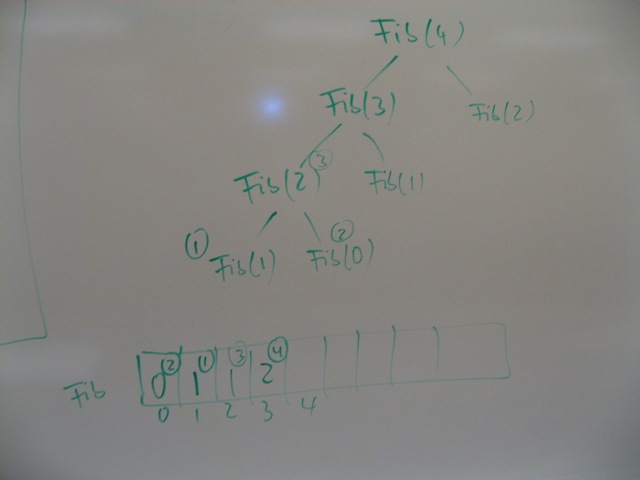 Fib(4)
Fib(3) Fib(2)
Fib(2) ③ Fib(1)
① Fib(1) ② Fib(0)
Fib 0 ② 1 ① 1 ③ 2 ④
0 1 2 3 4